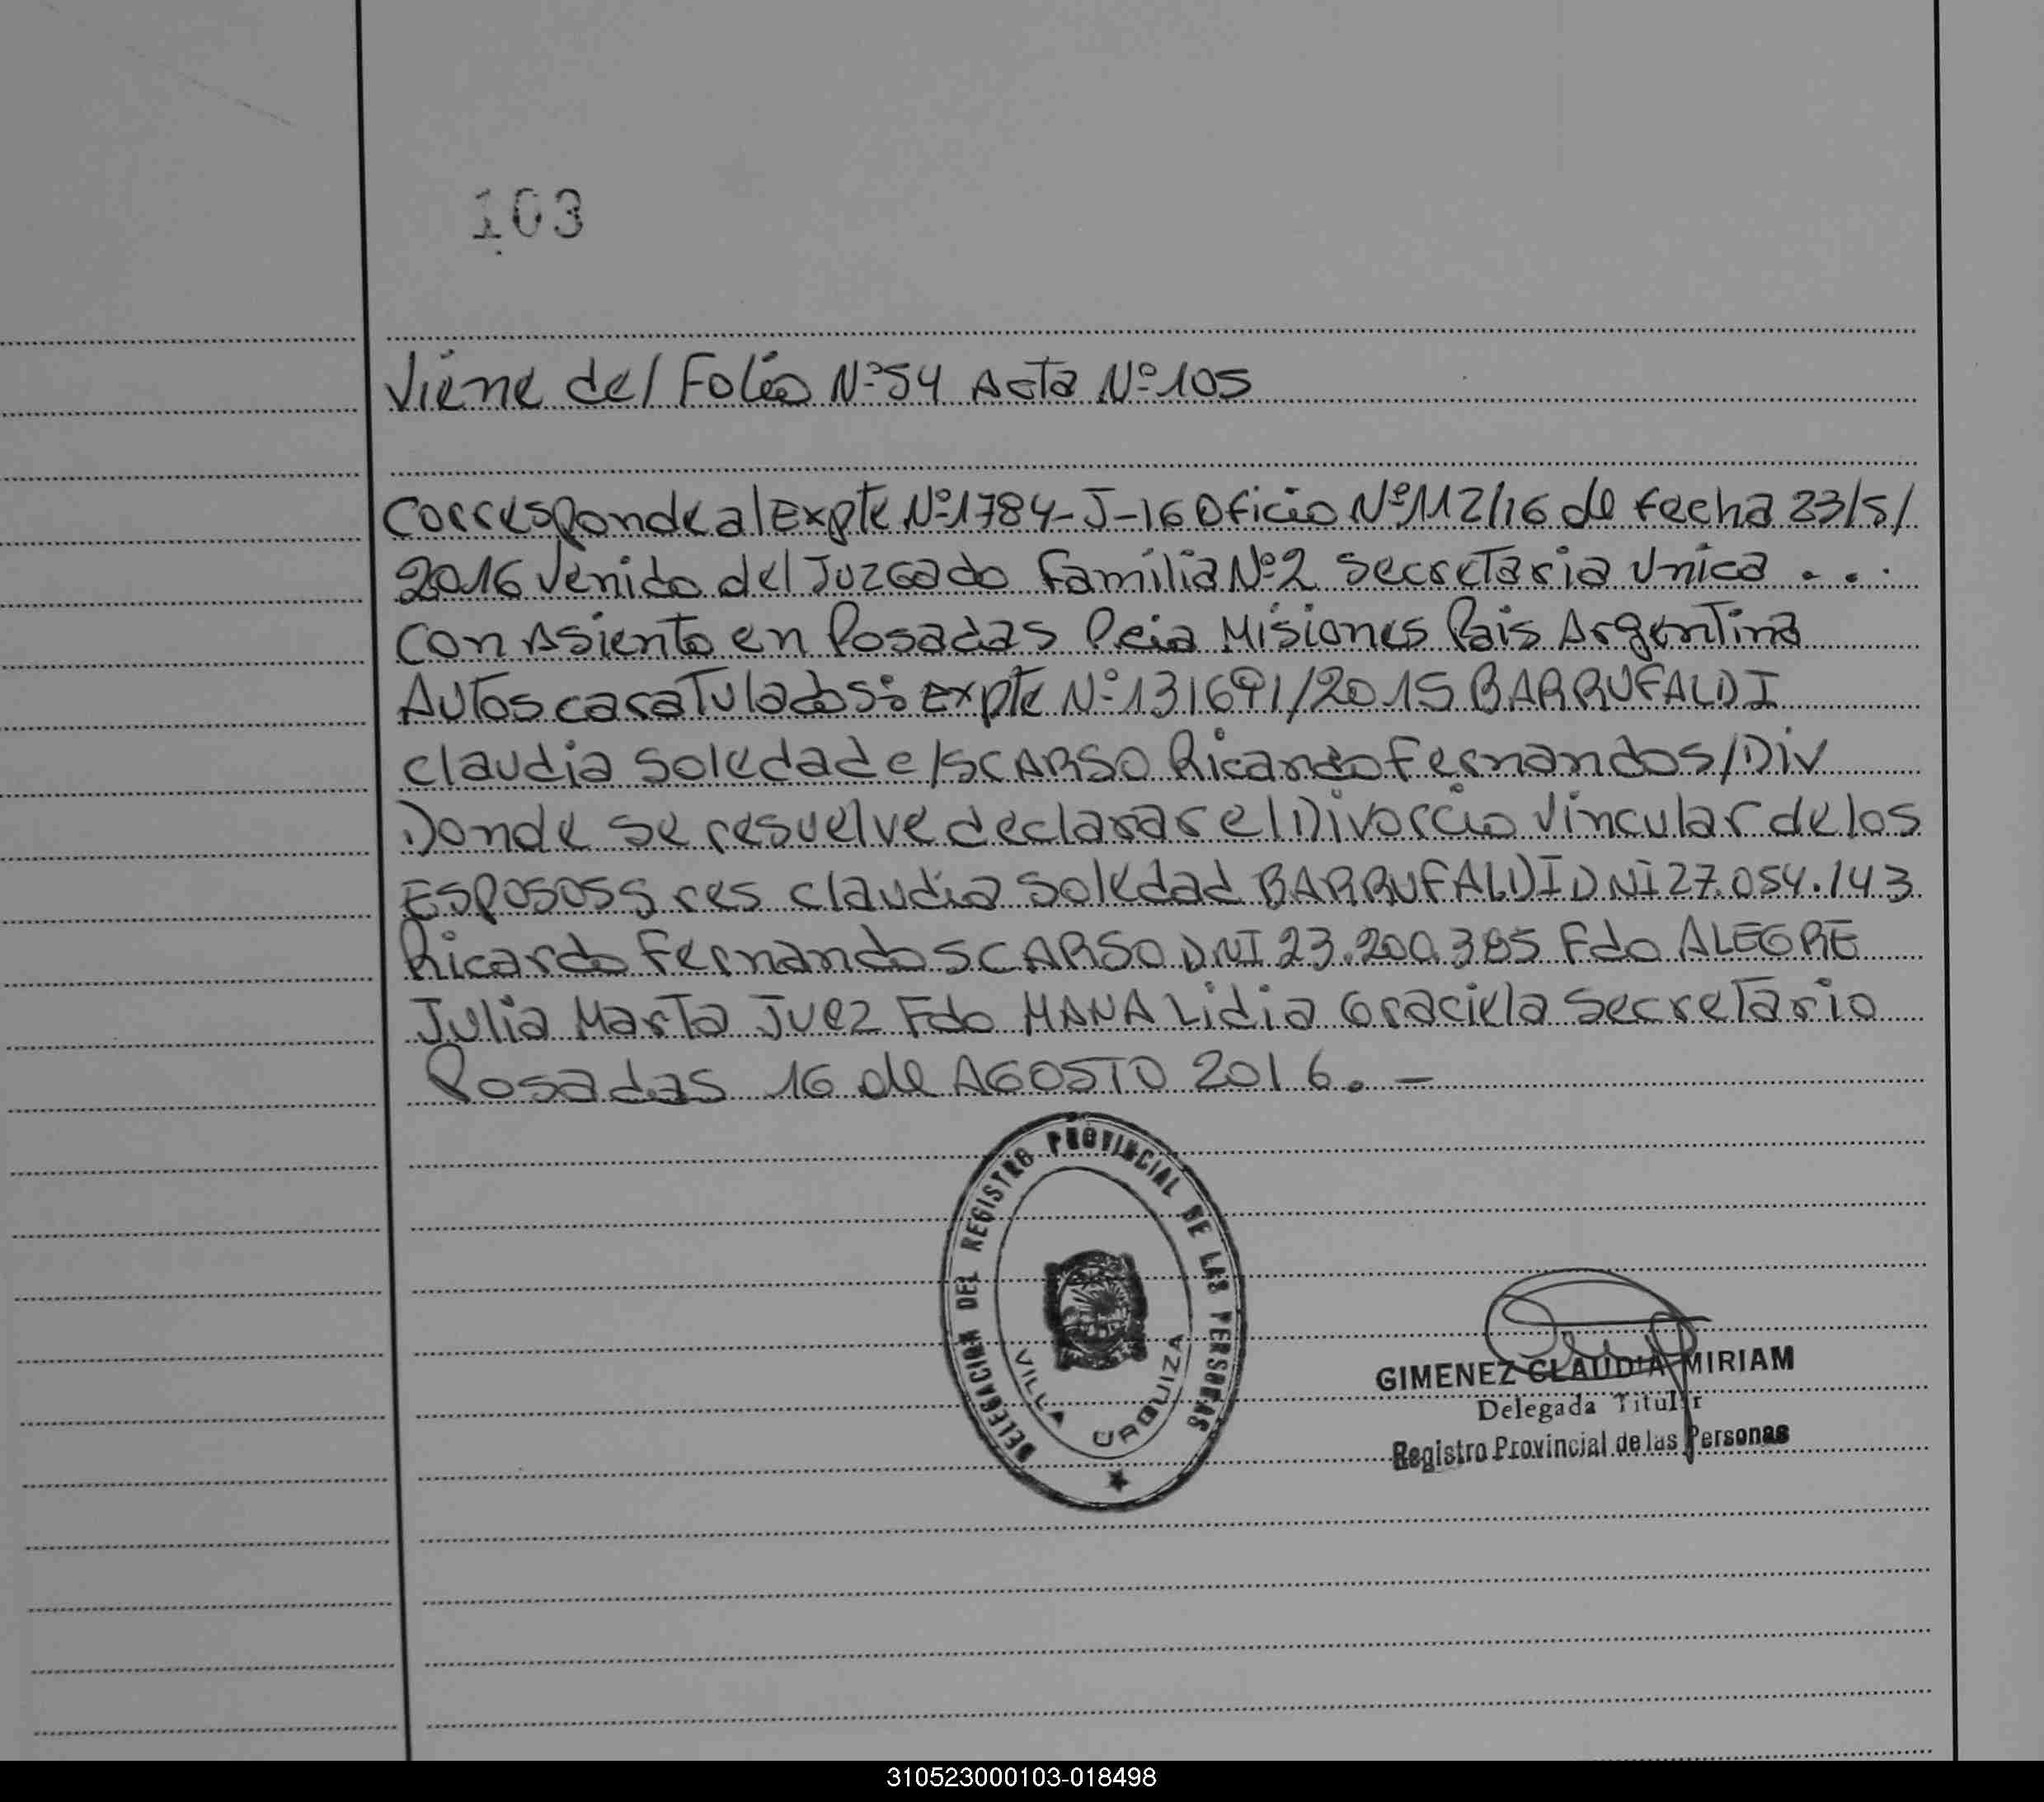 103
Viene del Folio Nº54 Acta Nº105
Corresponde al Expte Nº1784-J-16 Oficio Nº112/16 de fecha 23/5/
2016 Venido del Juzgado Familia Nº2 Secretaria Unica ...
con Asiento en Posadas Pcia Misiones Pais Argentina
Autos caratulados: expte Nº131691/2015 BARRUFALDI
Claudia Soledad c/SCARSO Ricardo Fernando s/Div
Donde se resuelve declarar el Divorcio Vincular de los
Esposos Sres Claudia Soledad BARRUFALDI DNI 27.054.143
Ricardo Fernando SCARSO DNI 23.200.385 Fdo ALEGRE
Julia Marta Juez Fdo MANA Lidia Graciela Secretario
Posadas 16 de AGOSTO 2016.-
DELEGACION DEL REGISTRO PROVINCIAL DE LAS PERSONAS
VILLA URQUIZA
GIMENEZ CLAUDIA MIRIAM
Delegada Titular
Registro Provincial de las Personas
310523000103-018498